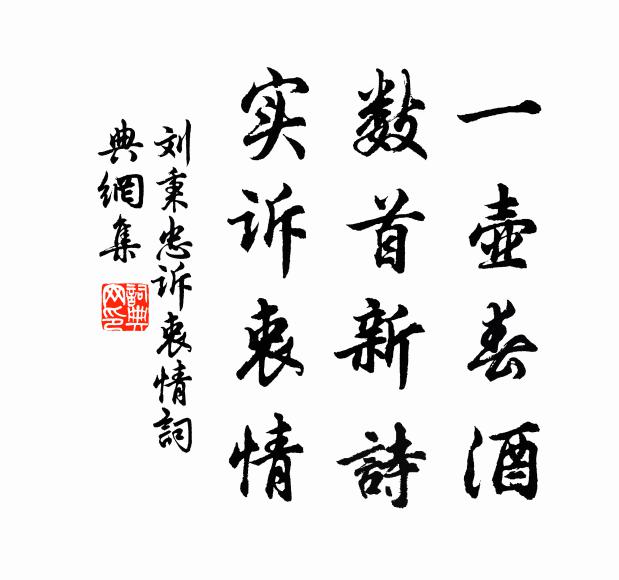 一壺春酒
数首新詩
实诉衷情
刘秉忠诉衷情詞
典網集
詞典网印